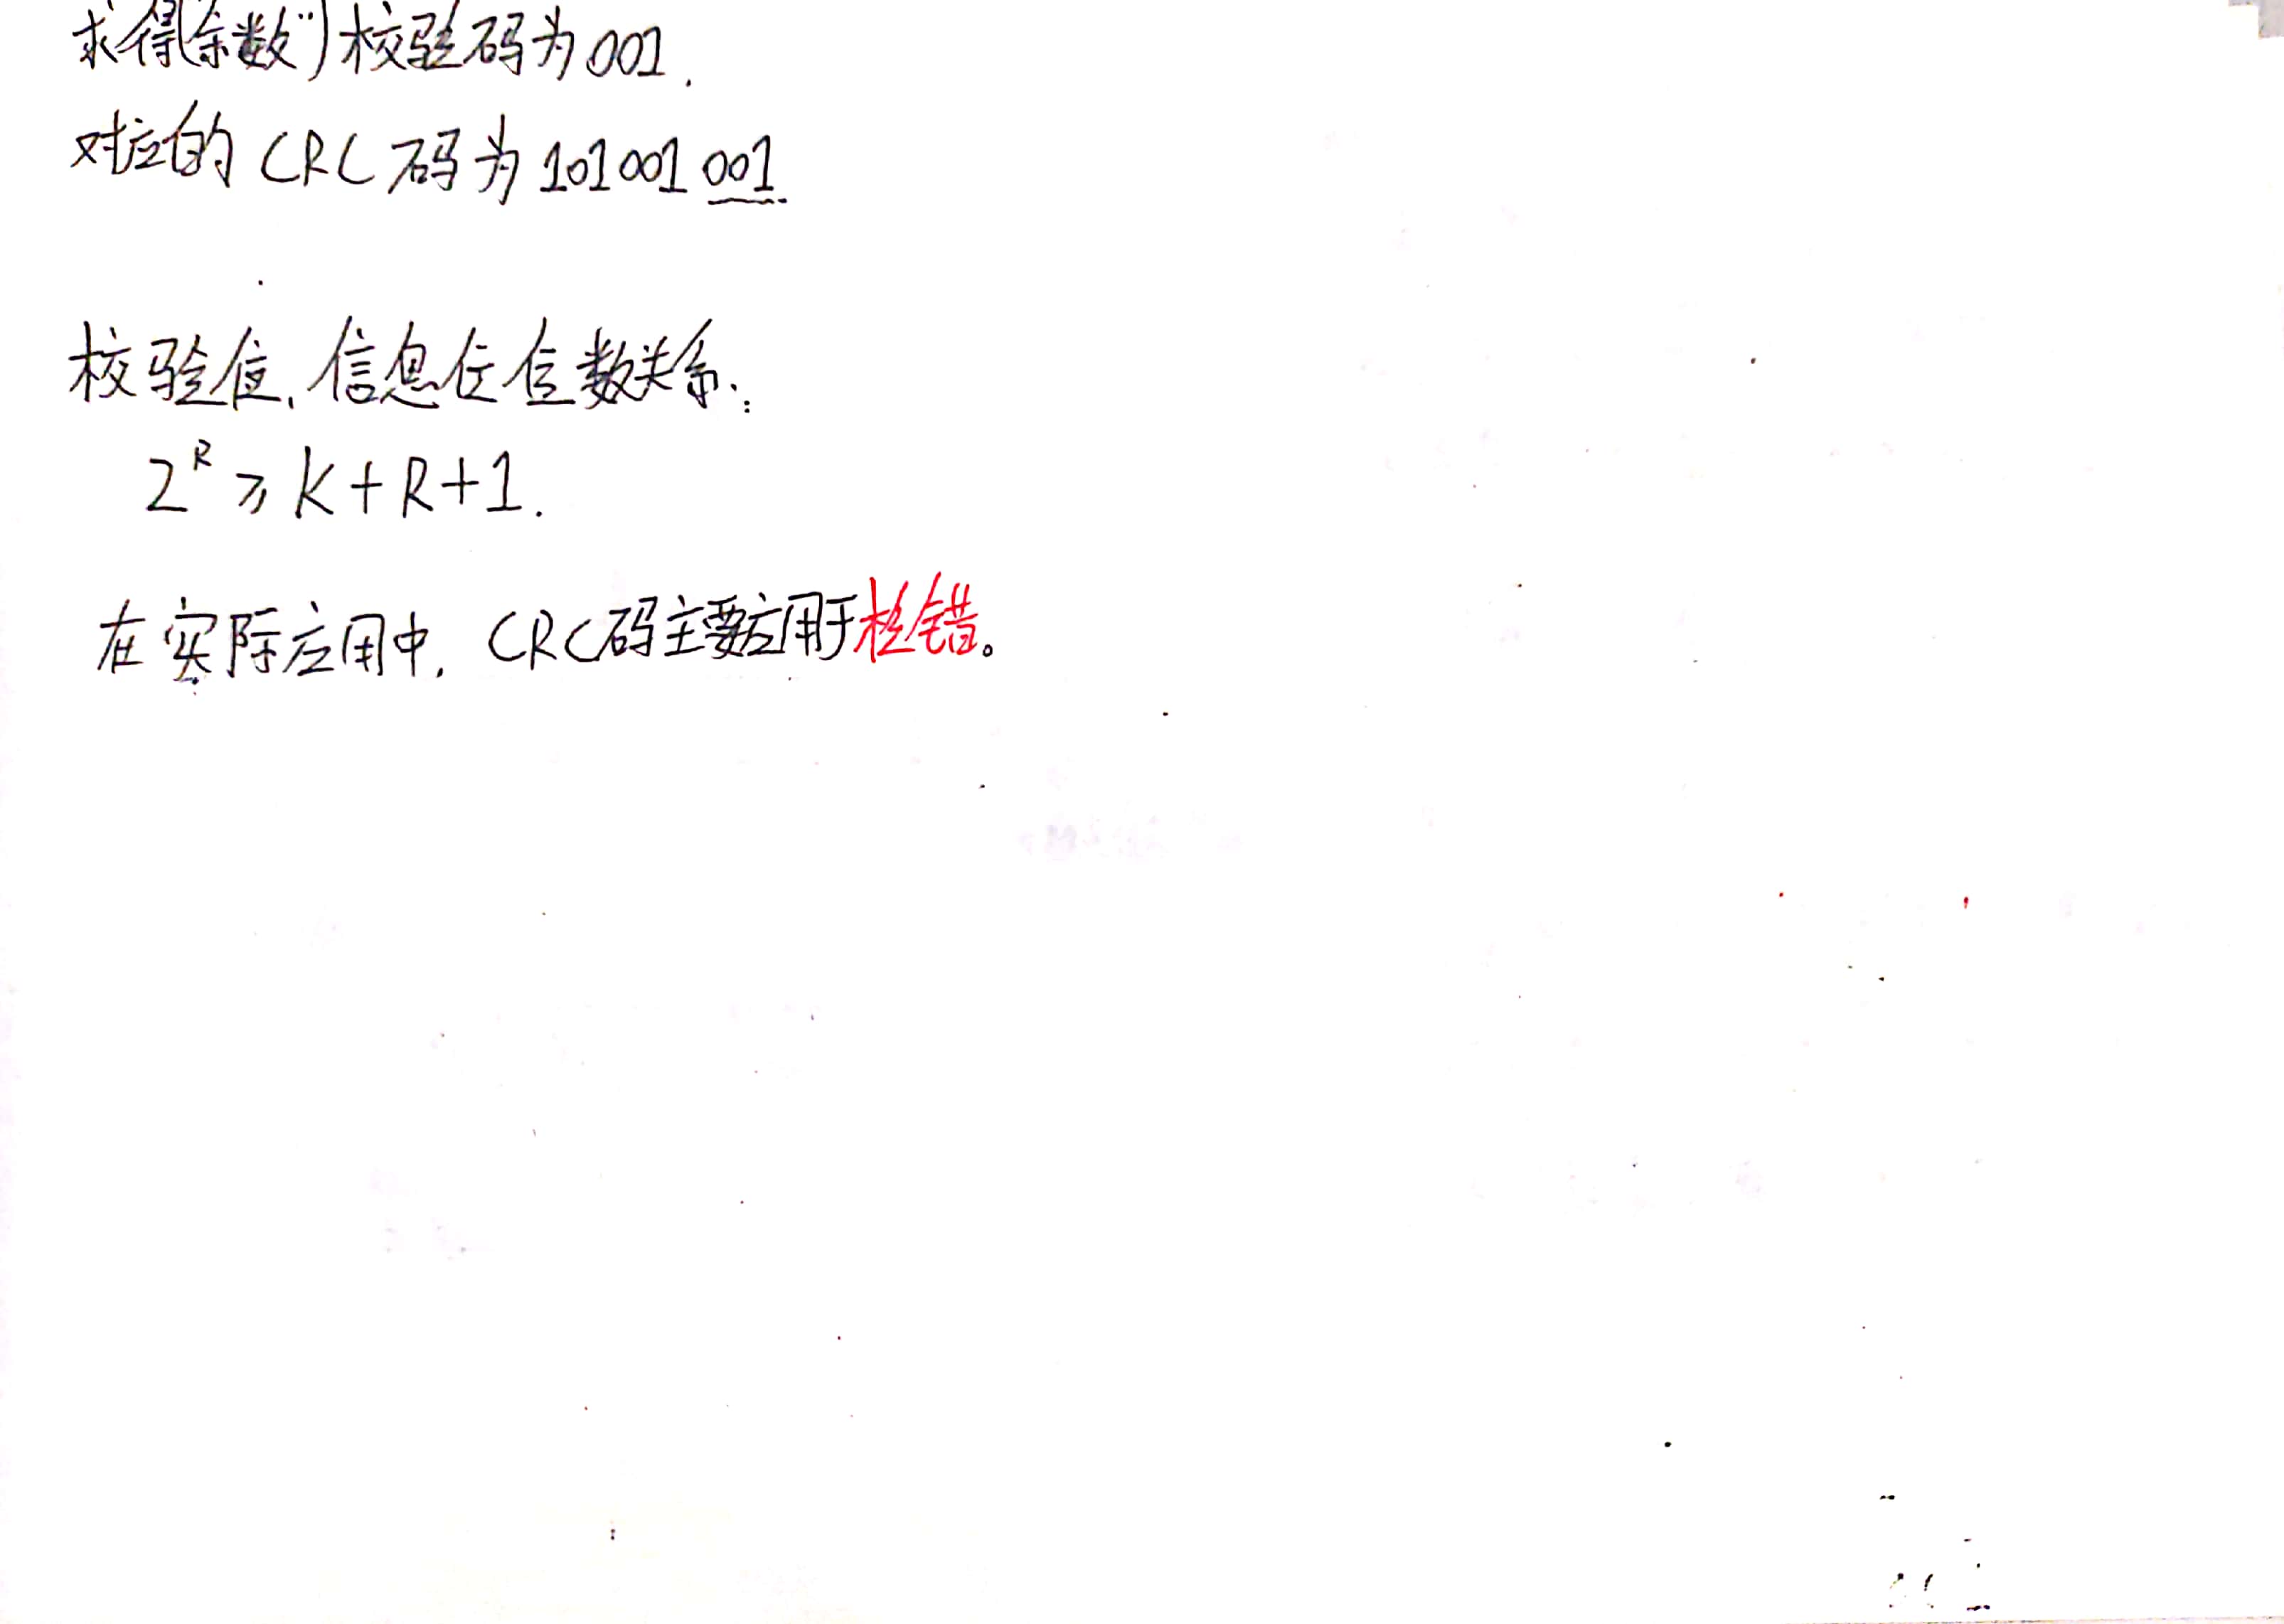 求得(“余数”)校验码为001.
对应的CRC码为101001 001
校验位、信息位位数关系:
2^R ⩾ K+R+1.
在实际应用中, CRC码主要应用于检错。